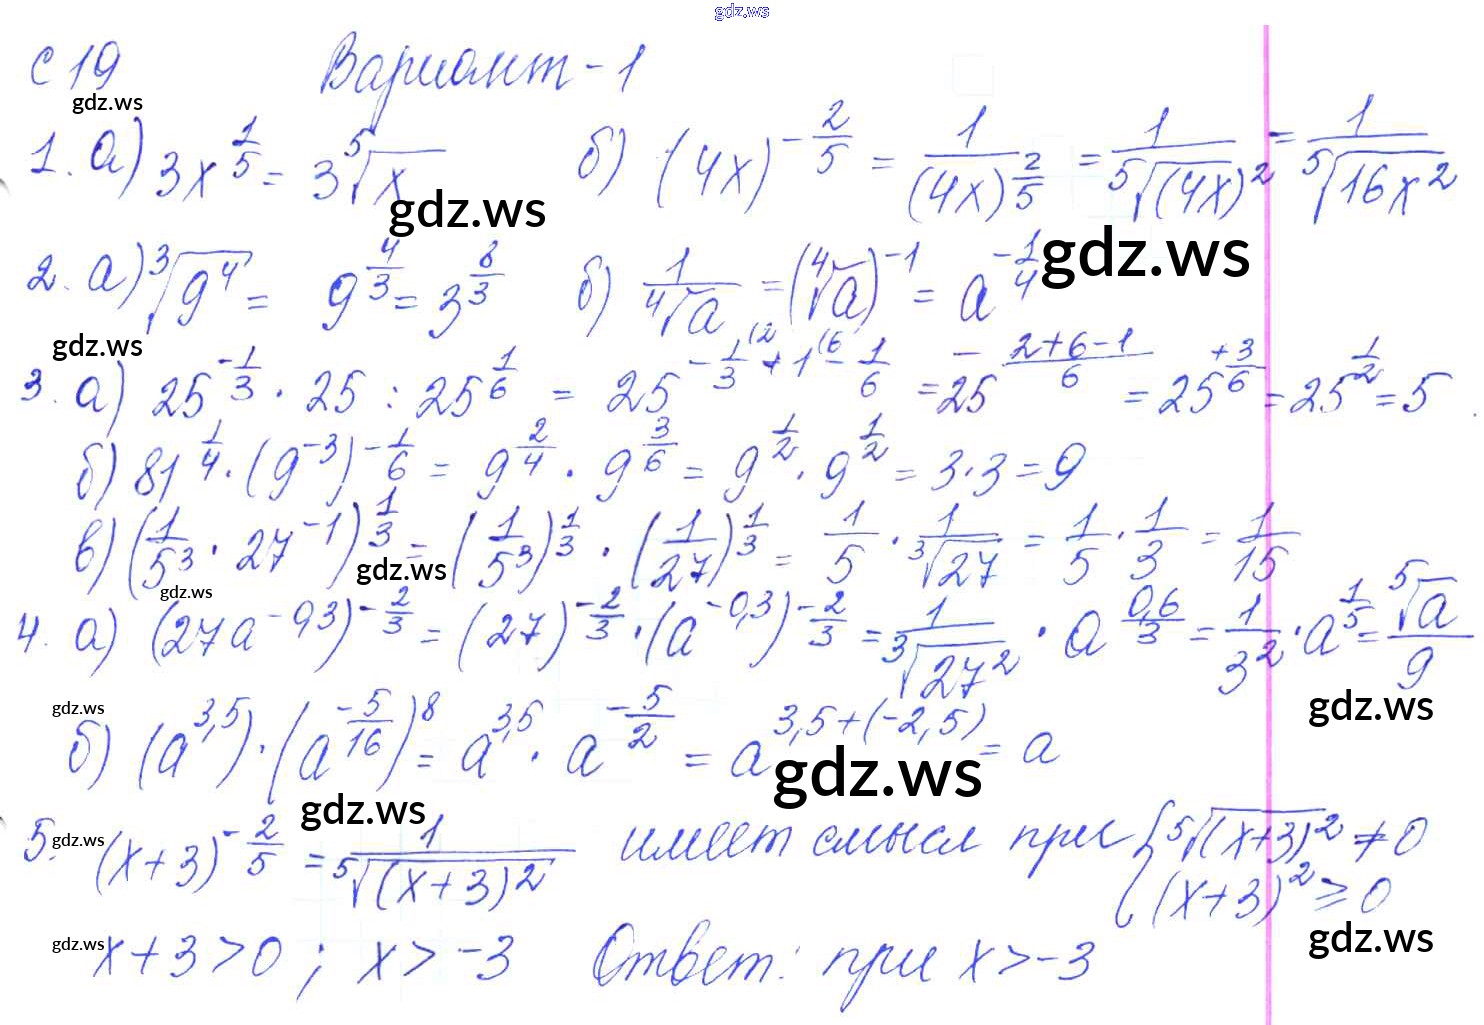 gdz.ws
С 19 Вариант-1
gdz.ws
1. а) 3x^{1/5} = 3⁵√x б) (4x)^{-2/5} = 1/(4x)^{2/5} = 1/⁵√(4x)² = 1/⁵√16x²
gdz.ws
2. а) ³√9⁴ = 9^{4/3} = 3^{8/3} б) 1/⁴√a = (⁴√a)^{-1} = a^{-1/4} gdz.ws
gdz.ws
3. а) 25^{-1/3} · 25 : 25^{1/6} = 25^{-1/3 (2 + 1 (6 - 1/6} = 25^{- (2+6-1)/6} = 25^{+3/6} = 25^{1/2} = 5
б) 81^{1/4} · (9^{-3})^{-1/6} = 9^{2/4} · 9^{3/6} = 9^{1/2} · 9^{1/2} = 3·3 = 9
в) (1/5³ · 27^{-1})^{1/3} = (1/5³)^{1/3} · (1/27)^{1/3} = 1/5 · 1/³√27 = 1/5 · 1/3 = 1/15
gdz.ws
gdz.ws
4. а) (27a^{-0,3})^{-2/3} = (27)^{-2/3} · (a^{-0,3})^{-2/3} = 1/³√27² · a^{0,6/3} = 1/3² · a^{1/5} = ⁵√a/9
gdz.ws gdz.ws
б) (a^{3,5}) · (a^{-5/16})^8 = a^{3,5} · a^{-5/2} = a^{3,5+(-2,5)} = a
gdz.ws
gdz.ws
5. gdz.ws (x+3)^{-2/5} = 1/⁵√(x+3)² имеет смысл при { ⁵√(x+3)² ≠ 0
(x+3)² ≥ 0
gdz.ws x+3>0 ; x>-3 Ответ: при x>-3
gdz.ws